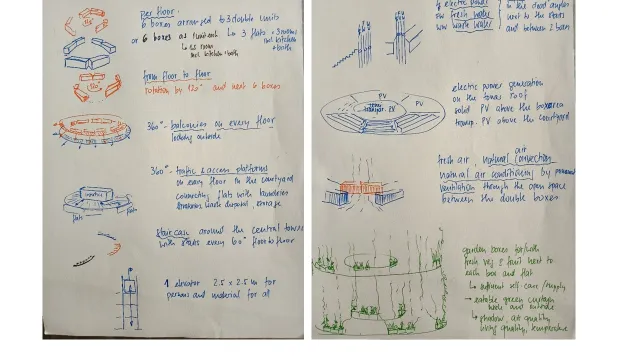 per floor
6 boxes arranged to 3 double units
or 6 boxes as
3 flats
incl. kitchen
+ bath
incl. kitchen + bath
120°
from floor to floor
rotation by 120° and next 6 boxes
120°
360° balconies on every floor
looking outside
360° traffic & access platforms
on every floor in the courtyard
connecting flats with laundries
waste disposal, storage
flats
flats
staircase around the central tower
with stairs every 60° floor to floor
1 elevator 2.5 x 2.5 m for
persons and material for all
electric power
FW fresh water
WW waste water
in the dead angles
next to the stairs
and between 2 boxes
PV
PV
PV
transp. PV
electric power generation
on the tower roof
solid PV above the box area
transp. PV above the courtyard
fresh air, natural air connection
natural air conditioning by
ventilation through the open space
between the double boxes
garden boxes for/with
fresh veg & fruit next to
each box and flat
self care / supply
green curtain
inside and outside
shadow, air quality
living quality, temperature